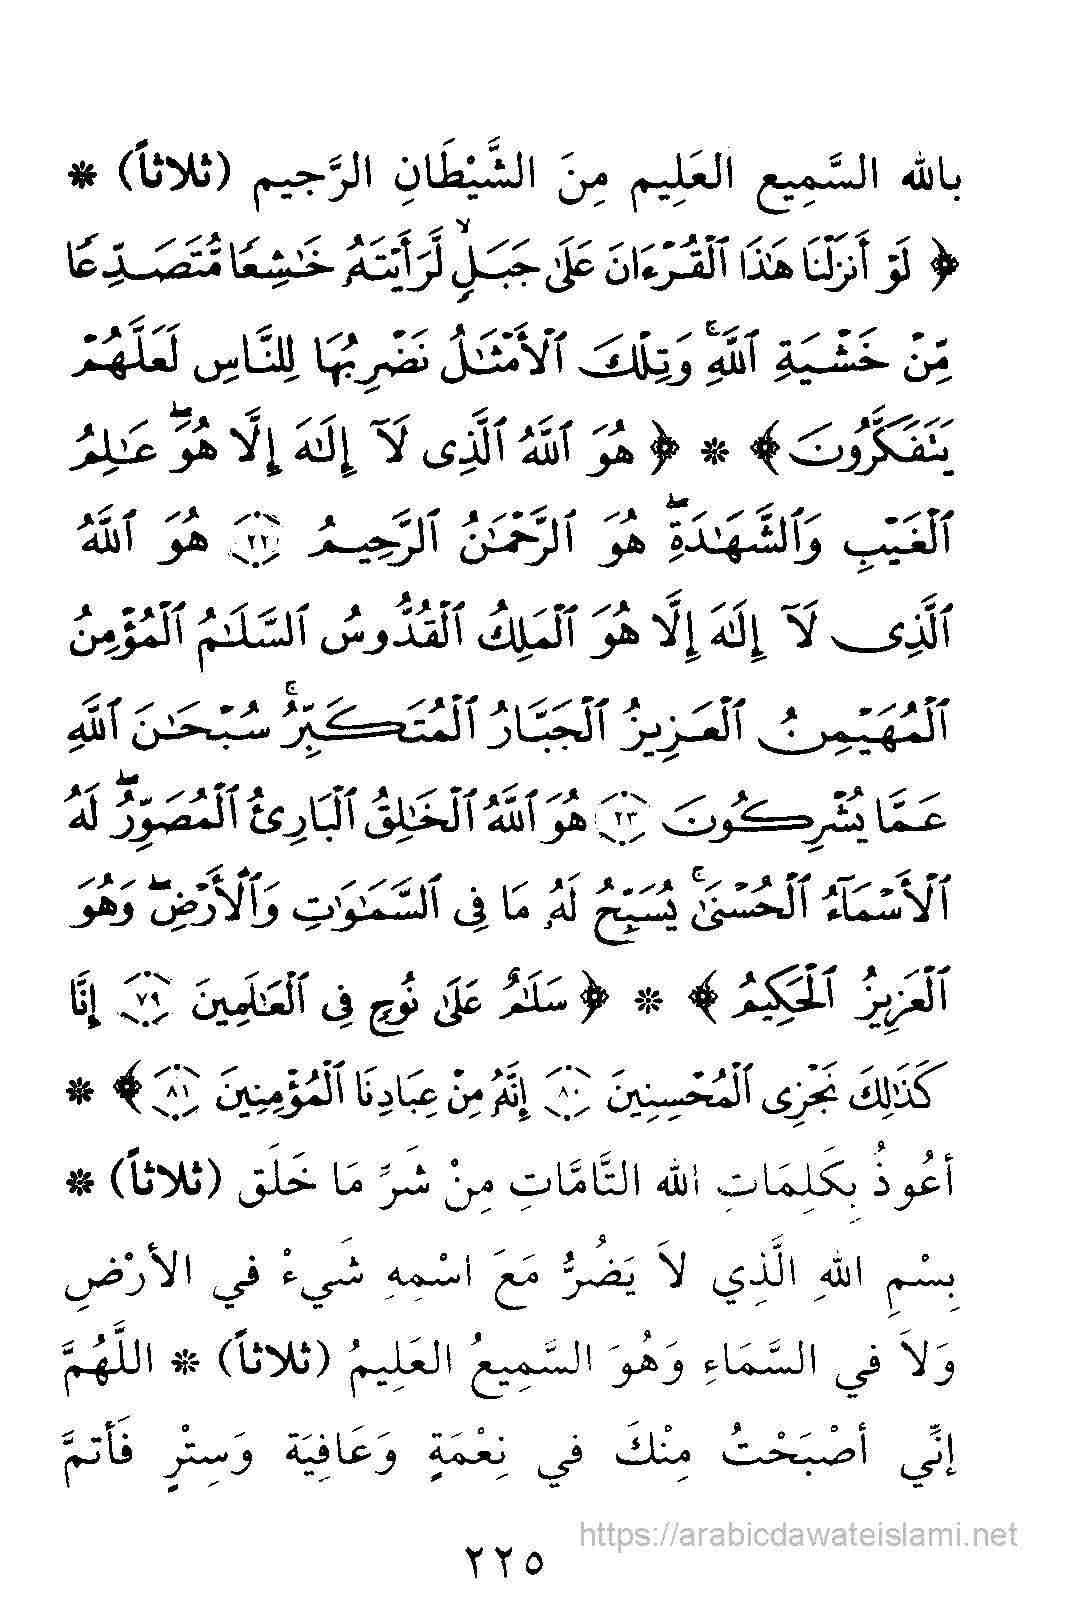 بالله السَّمِيعِ العَلِيمِ مِنَ الشَّيْطَانِ الرَّجيم (ثلاثاً) *
﴿ لَوْ أَنزَلْنَا هَٰذَا ٱلْقُرْءَانَ عَلَىٰ جَبَلٍۢ لَّرَأَيْتَهُۥ خَٰشِعًا مُّتَصَدِّعًا
مِّنْ خَشْيَةِ ٱللَّهِ ۚ وَتِلْكَ ٱلْأَمْثَٰلُ نَضْرِبُهَا لِلنَّاسِ لَعَلَّهُمْ
يَتَفَكَّرُونَ ﴾ * ﴿ هُوَ ٱللَّهُ ٱلَّذِى لَآ إِلَٰهَ إِلَّا هُوَ ۖ عَٰلِمُ
ٱلْغَيْبِ وَٱلشَّهَٰدَةِ ۖ هُوَ ٱلرَّحْمَٰنُ ٱلرَّحِيمُ ٢٢ هُوَ ٱللَّهُ
ٱلَّذِى لَآ إِلَٰهَ إِلَّا هُوَ ٱلْمَلِكُ ٱلْقُدُّوسُ ٱلسَّلَٰمُ ٱلْمُؤْمِنُ
ٱلْمُهَيْمِنُ ٱلْعَزِيزُ ٱلْجَبَّارُ ٱلْمُتَكَبِّرُ ۚ سُبْحَٰنَ ٱللَّهِ
عَمَّا يُشْرِكُونَ ٢٣ هُوَ ٱللَّهُ ٱلْخَٰلِقُ ٱلْبَارِئُ ٱلْمُصَوِّرُ ۖ لَهُ
ٱلْأَسْمَآءُ ٱلْحُسْنَىٰ ۚ يُسَبِّحُ لَهُۥ مَا فِى ٱلسَّمَٰوَٰتِ وَٱلْأَرْضِ ۖ وَهُوَ
ٱلْعَزِيزُ ٱلْحَكِيمُ ﴾ * ﴿ سَلَٰمٌ عَلَىٰ نُوحٍ فِى ٱلْعَٰلَمِينَ ٧٩ إِنَّا
كَذَٰلِكَ نَجْزِى ٱلْمُحْسِنِينَ ٨٠ إِنَّهُۥ مِنْ عِبَادِنَا ٱلْمُؤْمِنِينَ ٨١ ﴾ *
أعُوذُ بِكَلِمَاتِ الله التَّامَّاتِ مِنْ شَرِّ مَا خَلَق (ثلاثاً) *
بِسْمِ اللهِ الَّذِي لاَ يَضُرُّ مَعَ اسْمِهِ شَيءْ في الأرْضِ
وَلاَ في السَّمَاءِ وَهُوَ السَّمِيعُ العَلِيمُ (ثلاثاً) * اللَّهُمَّ
إنِّي أصْبَحْتُ مِنْكَ في نِعْمَةٍ وَعَافِيَة وَسِتْرٍ فَأتمَّ
https://arabicdawateislami.net
٢٢٥